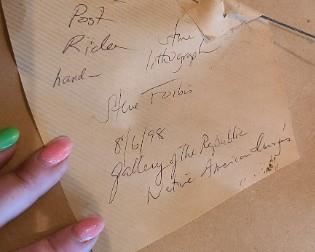 Post
Rider
hand- stone
lithograph
Steve Forbis
8/6/98
Gallery of the Republic
Native American